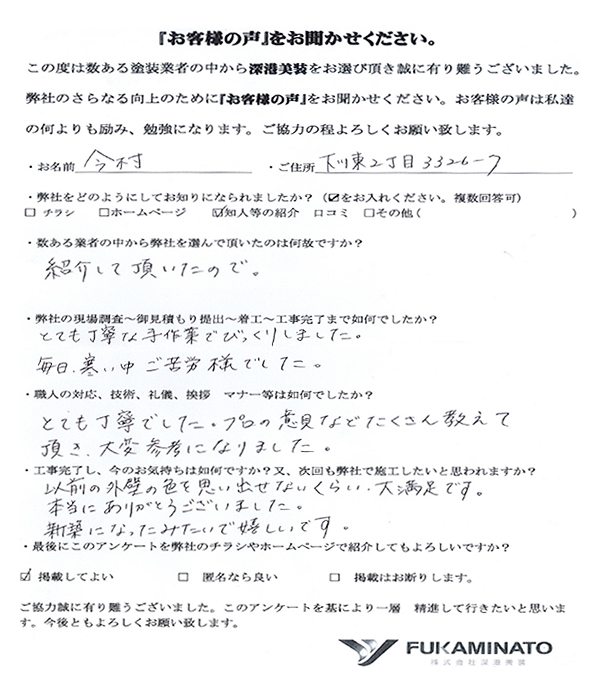 『お客様の声』をお聞かせください。
この度は数ある塗装業者の中から深港美装をお選び頂き誠に有り難うございました。
弊社のさらなる向上のために『お客様の声』をお聞かせください。お客様の声は私達
の何よりも励み、勉強になります。ご協力の程よろしくお願い致します。
・お名前 今村 ・ご住所 下川東2丁目3326-7
・弊社をどのようにしてお知りになられましたか？（☑をお入れください。複数回答可）
□ チラシ □ホームページ ☑知人等の紹介 口コミ □その他（ ）
・数ある業者の中から弊社を選んで頂いたのは何故ですか？
紹介して頂いたので。
・弊社の現場調査～御見積もり提出～着工～工事完了まで如何でしたか？
とても丁寧な手作業でびっくりしました。
毎日、寒い中ご苦労様でした。
・職人の対応、技術、礼儀、挨拶 マナー等は如何でしたか？
とても丁寧でした。プロの意見などたくさん教えて
頂き、大変参考になりました。
・工事完了し、今のお気持ちは如何ですか？又、次回も弊社で施工したいと思われますか？
以前の外壁の色を思い出せないくらい、大満足です。
本当にありがとうございました。
新築になったみたいで嬉しいです。
・最後にこのアンケートを弊社のチラシやホームページで紹介してもよろしいですか？
☑ 掲載してよい □ 匿名なら良い □ 掲載はお断りします。
ご協力誠に有り難うございました。このアンケートを基により一層 精進して行きたいと思いま
す。今後ともよろしくお願い致します。
FUKAMINATO
株式会社深港美装